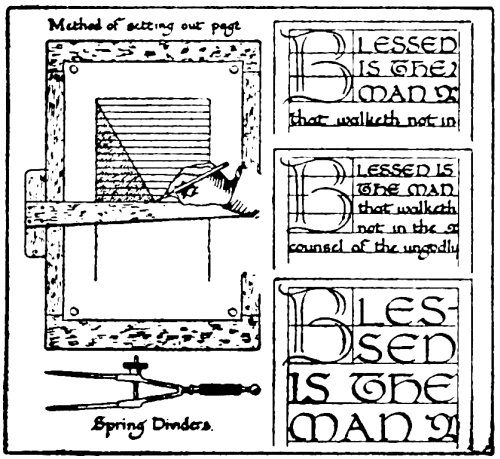 Method of setting out page
Spring Dividers.
BLESSED
IS THE
MAN
that walketh not in
BLESSED IS
THE MAN
that walketh
not in the
counsel of the ungodly
BLES-
SED
IS THE
MAN